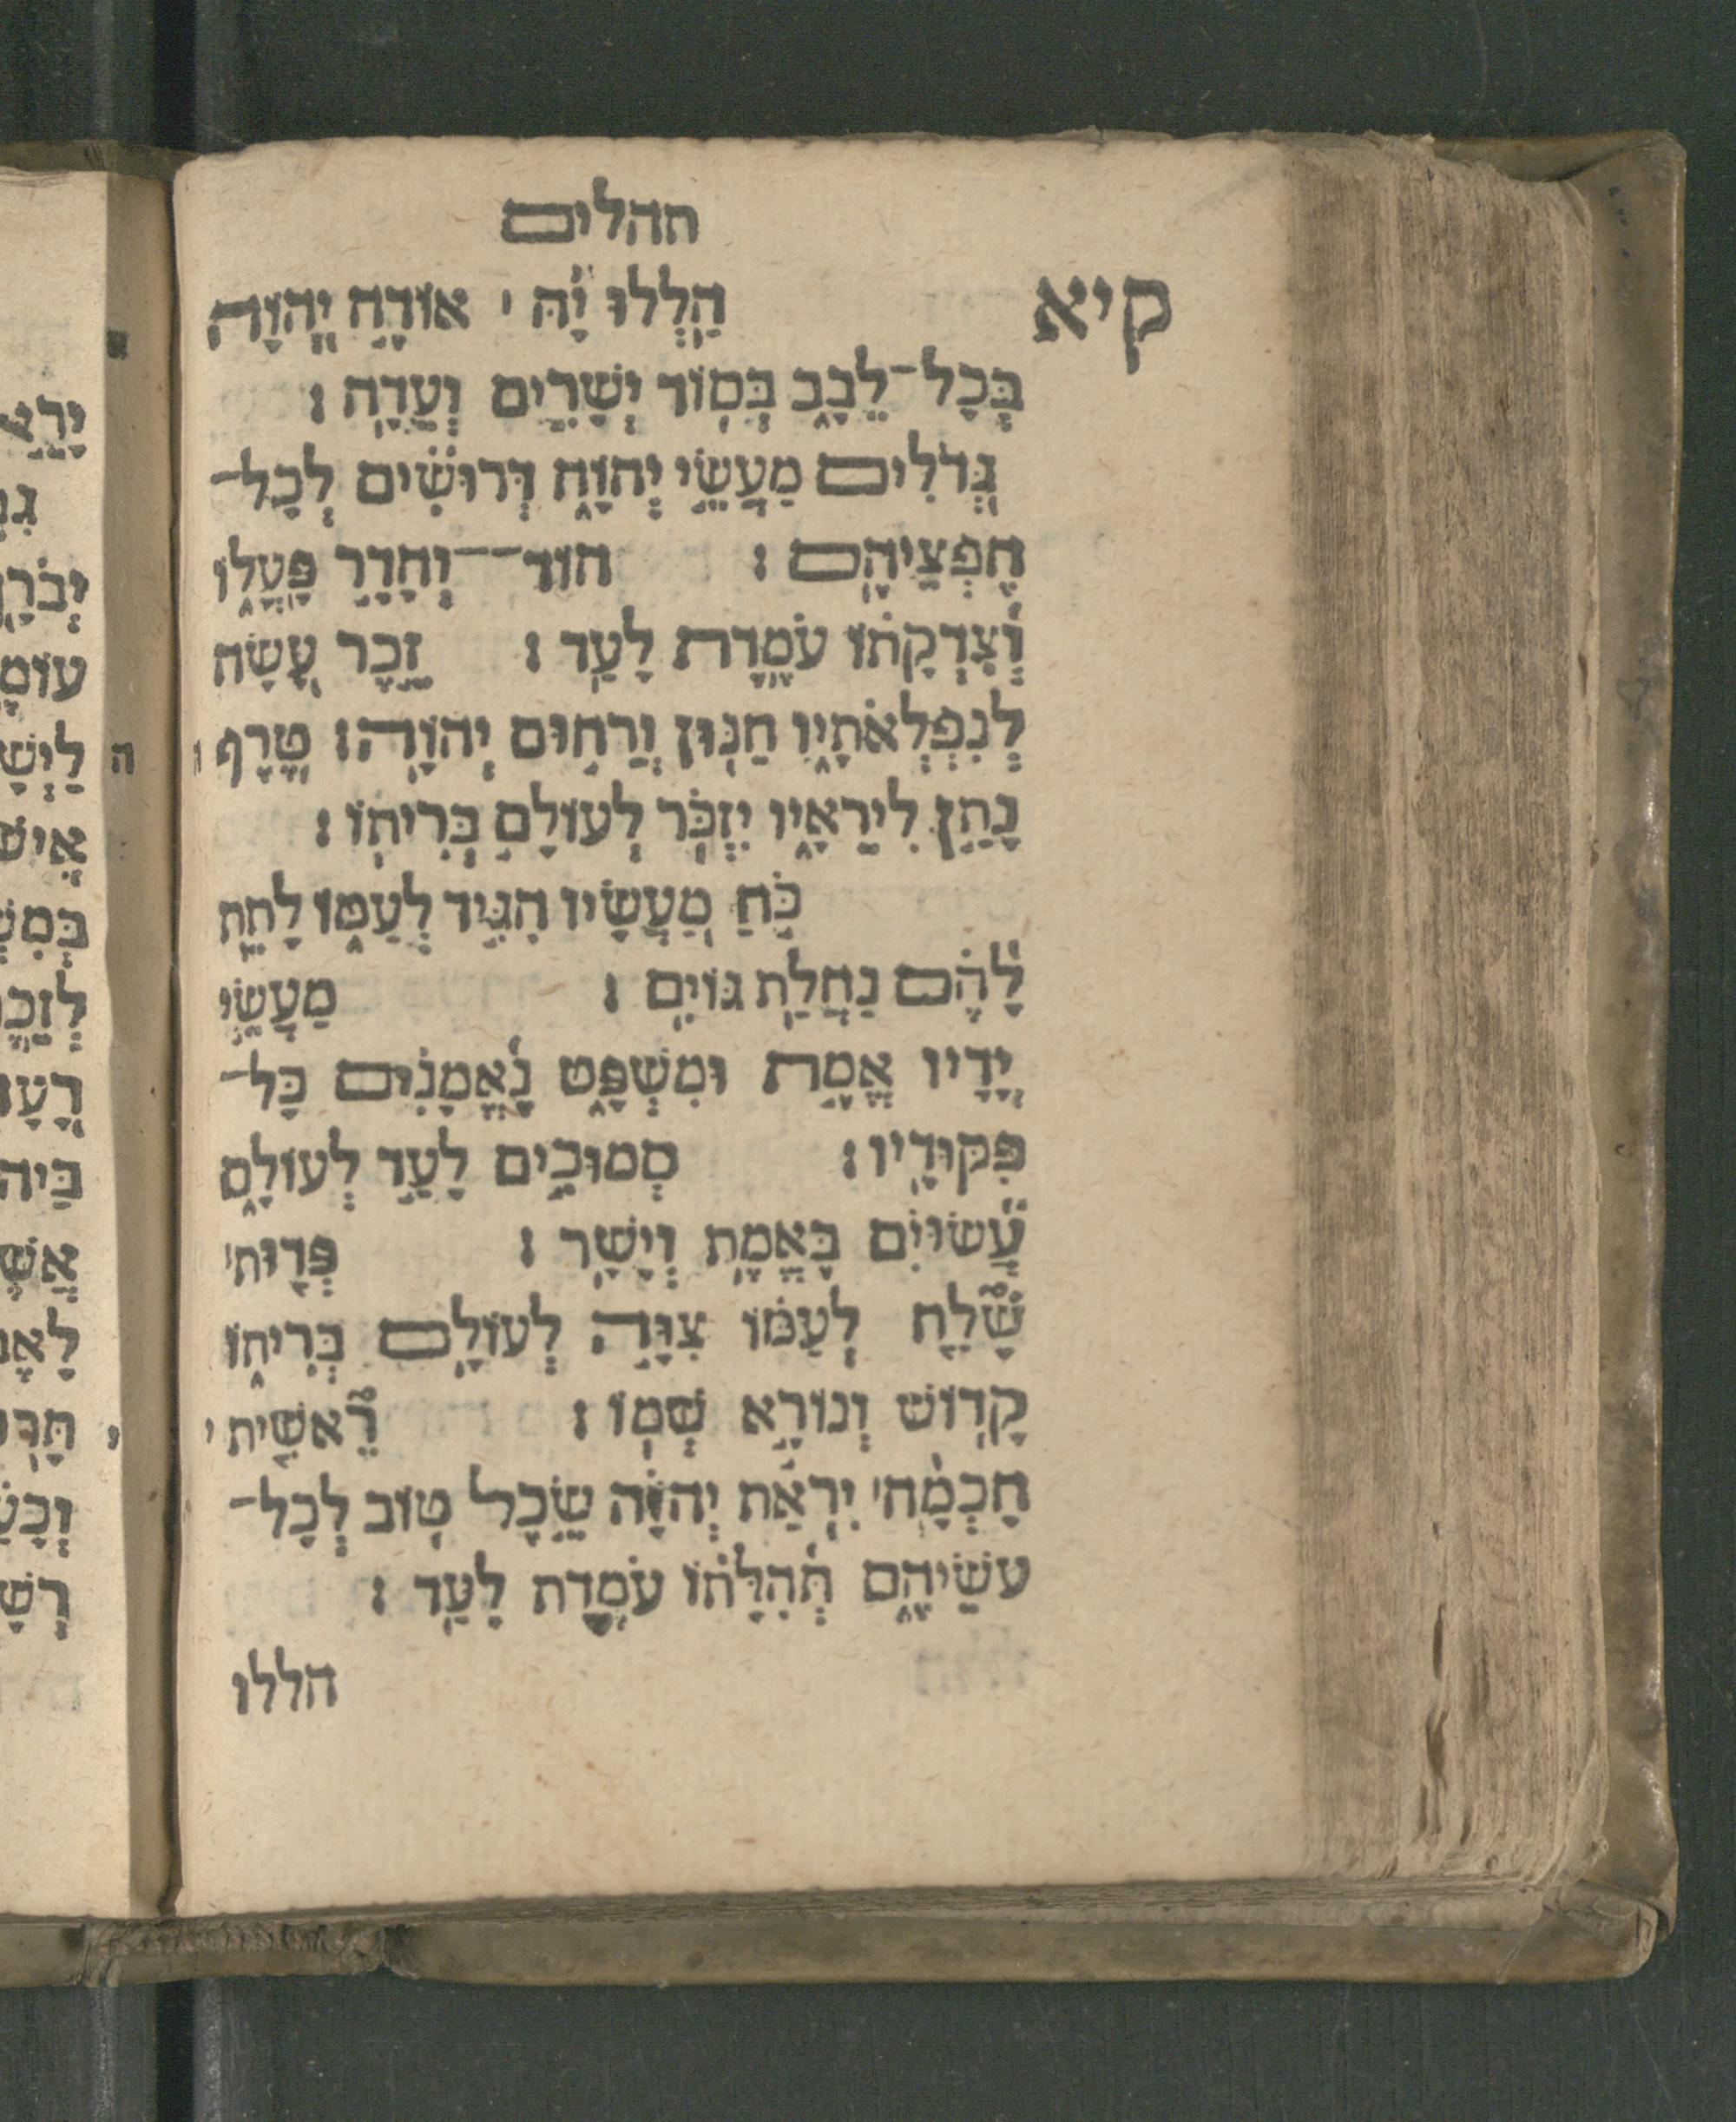 תהלים
קיא
הַֽלְלוּ יָ֨הּ ׀ אוֹדֶ֣ה יְ֭הוָה
בְּכָל־לֵבָ֑ב בְּס֖וֹד יְשָׁרִ֣ים וְעֵדָֽה׃
גְּ֭דֹלִים מַעֲשֵׂ֣י יְהוָ֑ה דְּ֝רוּשִׁ֗ים לְכָל־
חֶפְצֵיהֶֽם׃ הוֹד־וְהָדָ֥ר פָּֽעֳל֑וֹ
וְ֝צִדְקָת֗וֹ עֹמֶ֥דֶת לָעַֽד׃ זֵ֣כֶר עָ֭שָׂה
לְנִפְלְאֹתָ֑יו חַנּ֖וּן וְרַח֣וּם יְהוָֽה׃ טֶ֭רֶף ו
נָתַ֣ן לִֽירֵאָ֑יו יִזְכֹּ֖ר לְעוֹלָ֣ם בְּרִיתֽוֹ׃
כֹּ֣חַ מַ֭עֲשָׂיו הִגִּ֣יד לְעַמּ֑וֹ לָתֵ֥ת
לָ֝הֶ֗ם נַחֲלַ֥ת גּוֹיִֽם׃ מַעֲשֵׂ֣י
יָ֭דָיו אֱמֶ֣ת וּמִשְׁפָּ֑ט נֶ֝אֱמָנִ֗ים כָּל־
פִּקּוּדָֽיו׃ סְמוּכִ֣ים לָעַ֣ד לְעוֹלָ֑ם
עֲ֝שׂוּיִ֗ם בֶּאֱמֶ֥ת וְיָשָֽׁר׃ פְּד֤וּת׀
שָׁ֘לַ֤ח לְעַמּ֗וֹ צִוָּֽה לְעוֹלָ֥ם בְּרִית֑וֹ
קָד֖וֹשׁ וְנוֹרָ֣א שְׁמֽוֹ׃ רֵ֘אשִׁ֤ית י
חָכְמָ֨ה׀ יִרְאַ֬ת יְהוָ֗ה שֵׂ֣כֶל ט֭וֹב לְכָל־
עֹשֵׂיהֶ֑ם תְּ֝הִלָּת֗וֹ עֹמֶ֥דֶת לָעַֽד׃
הללו